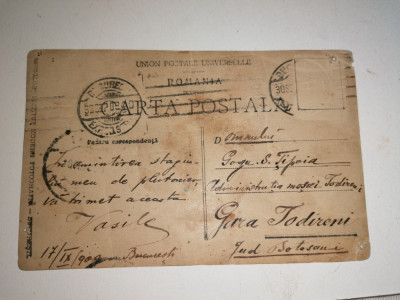 UNION POSTALE UNIVERSELLE
ROMANIA
CARTA POSTALA
Pentru corespondență
În amintirea stagiu-
meu de plutonier,
vă trimet aceasta
Vasile
17/IX/909 București
Domnului
Gogu. S. Țipoia
Administrația moșiei Todireni
Gura Todireni
Jud Botosani